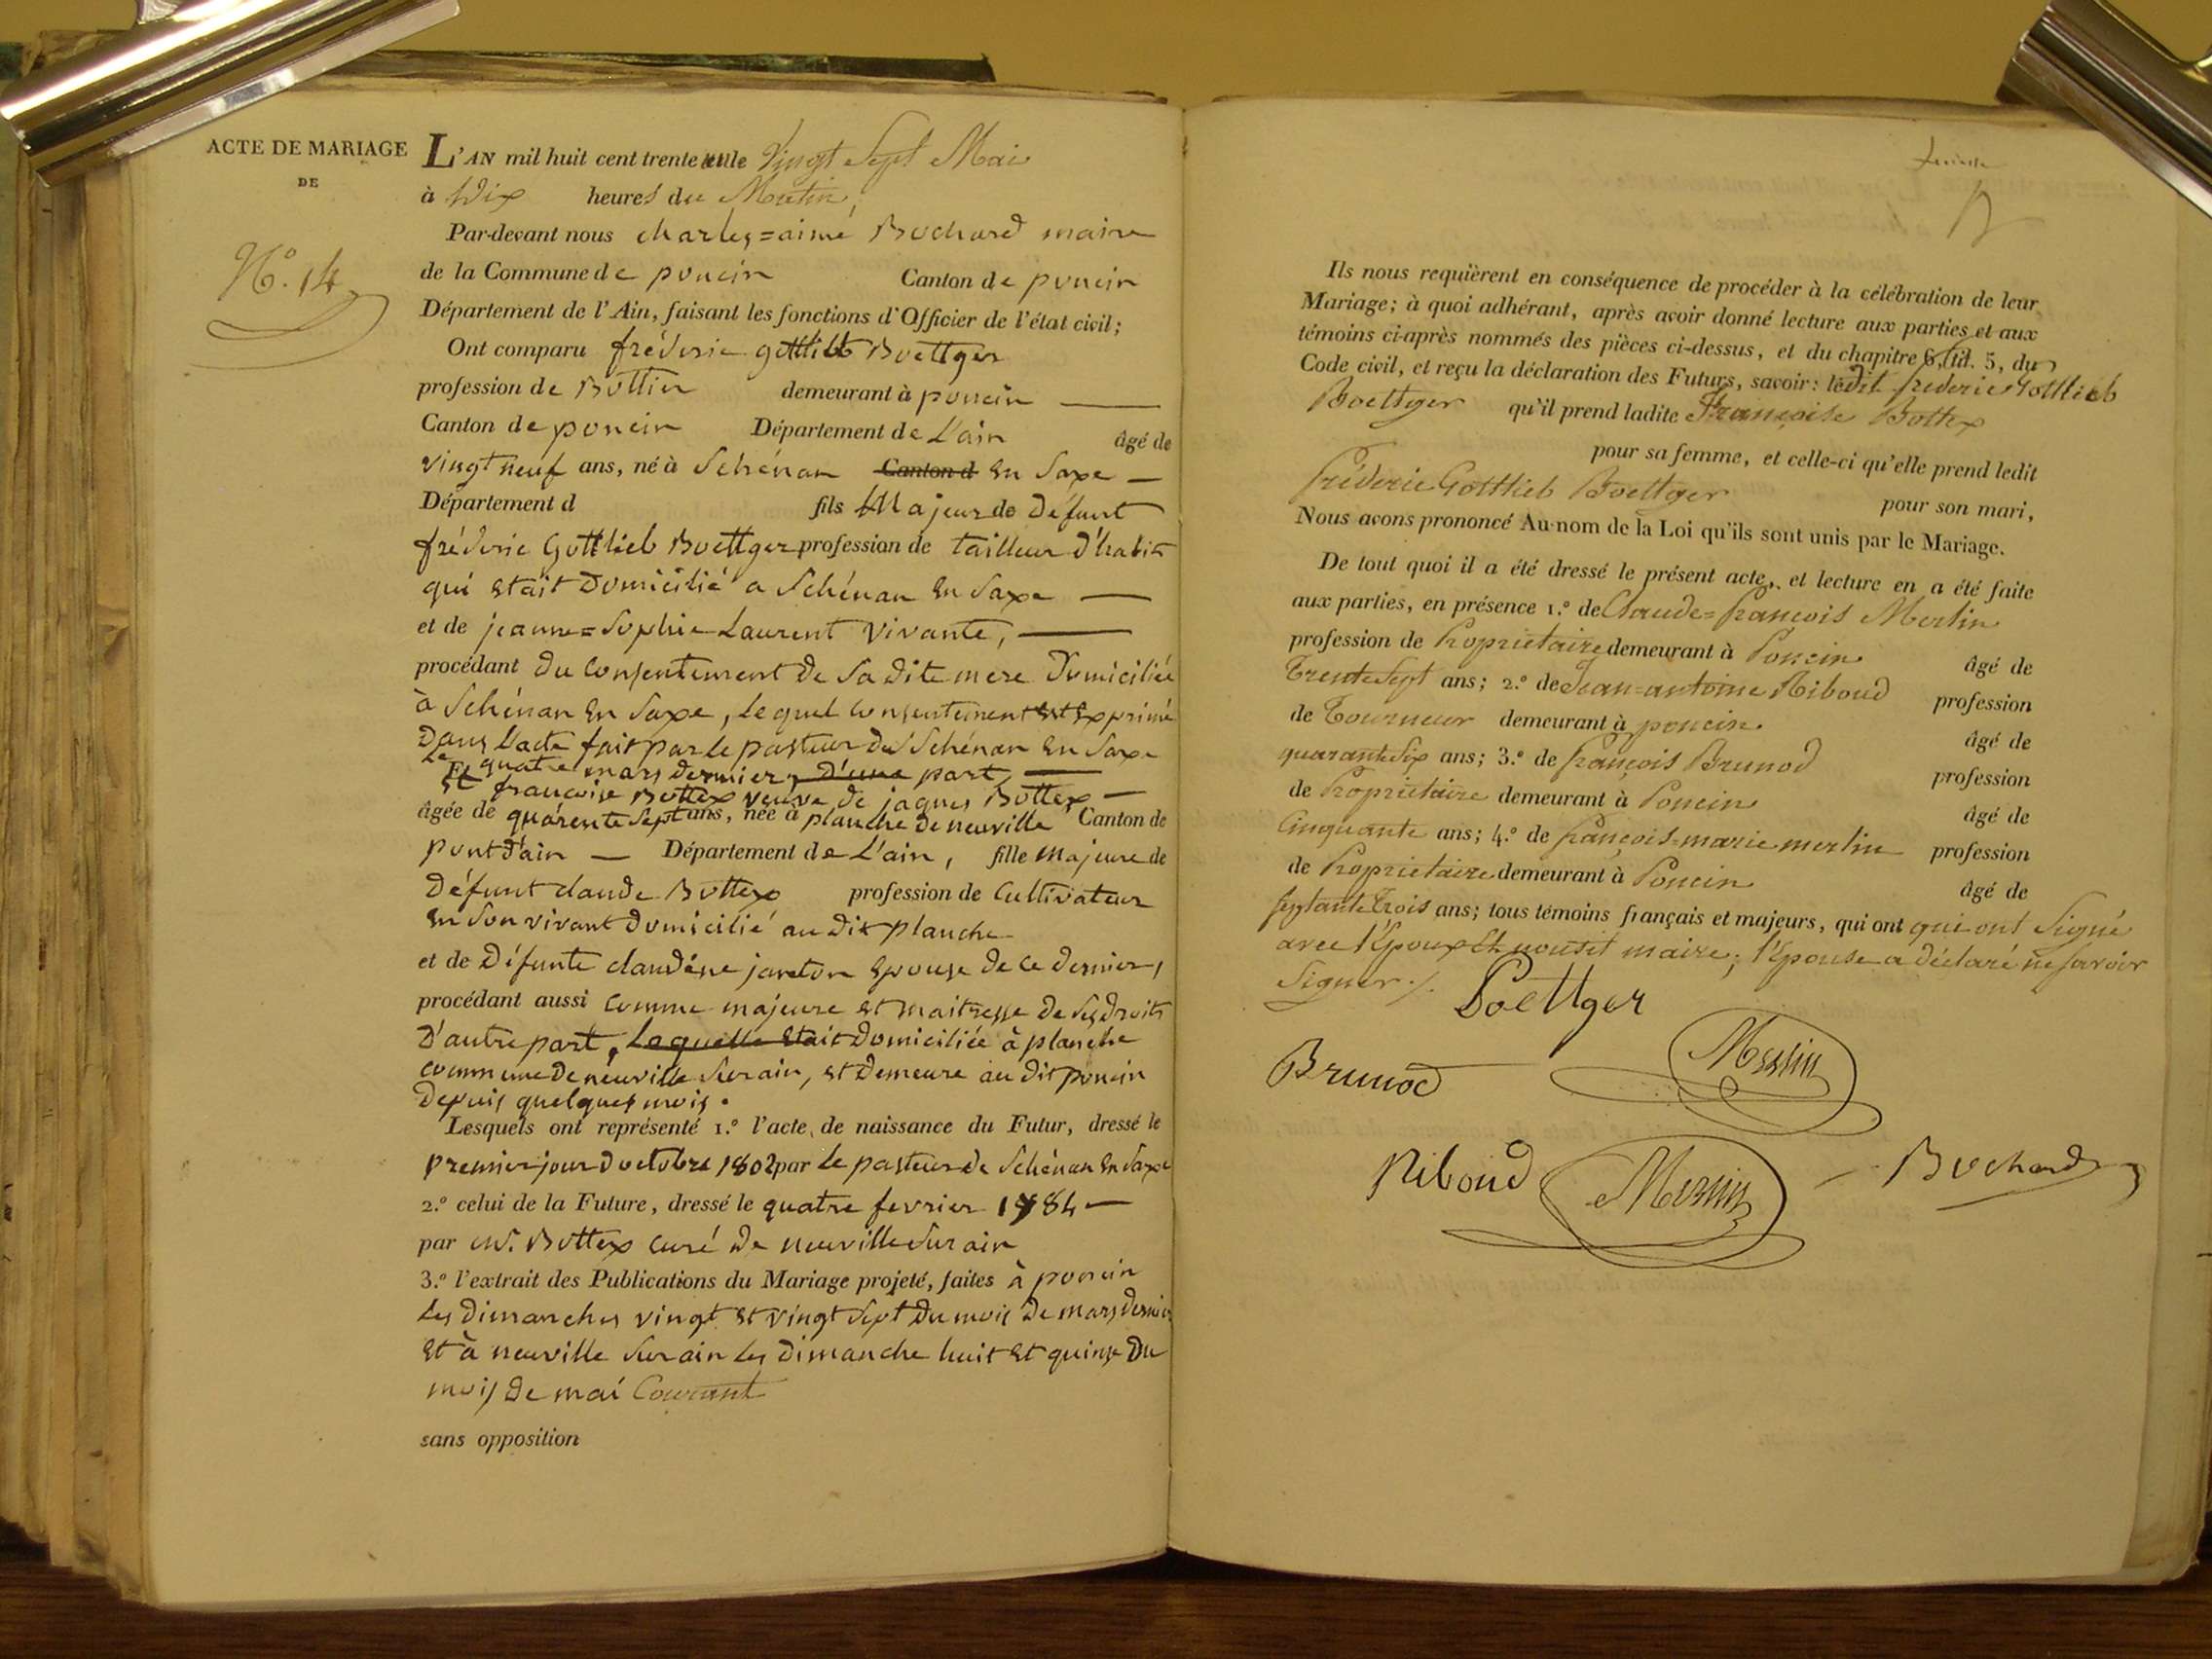 ACTE DE MARIAGE
DE
N.º 14
L'AN mil huit cent trente le Vingt Sept Mai
à Dix heures du Matin,
Par-devant nous charles=aimé Bochard maire
de la Commune de poncin Canton de poncin
Département de l'Ain, faisant les fonctions d'Officier de l'état civil;
Ont comparu fréderic gottlieb Boettger
profession de Bottier demeurant à poncin
Canton de poncin Département de L'ain âgé de
vingt neuf ans, né à Schénau Canton d en Saxe
Département d fils Majeur de Défunt
fréderic Gottlieb Boettger profession de tailleur d'habits
qui etait Domicilié a Schénau en Saxe
et de jeanne=Sophie Laurent vivante,
procédant du consentement de sa dite mere Domiciliée
à Schénau en Saxe, lequel consentement est exprimé
Dans l'acte fait par le pasteur de Schénau en Saxe
Le quatre mars dernier, d'une part,
Et françoise Bottex veuve de jaques Bottex
âgée de quarente Sept ans, née à planche de neuville Canton de
pont d'ain Département de L'ain, fille majeure de
Défunt claude Bottex profession de Cultivateur
en son vivant domicilié au dit planche
et de Défunte claudéne janeton epouse de ce dernier,
procédant aussi comme majeure et maitresse de ses droits
D'autre part, Laquelle etait Domiciliée à planche
commune de neuville sur ain, et demeure au dit poncin
depuis quelques mois.
Lesquels ont représenté 1.º l'acte de naissance du Futur, dressé le
premier jour d'octobre 1802 par le pasteur de Schénau en Saxe
2.º celui de la Future, dressé le quatre fevrier 1784
par mr. Bottex curé de neuville sur ain
3.º l'extrait des Publications du Mariage projeté, faites à poncin
Les dimanches vingt et vingt sept du mois de mars dernier
et à neuville sur ain les dimanche huit et quinze du
mois de mai Courant
sans opposition
Ils nous requièrent en conséquence de procéder à la célébration de leur
Mariage; à quoi adhérant, après avoir donné lecture aux parties et aux
témoins ci-après nommés des pièces ci-dessus, et du chapitre 6, tit. 5, du
Code civil, et reçu la déclaration des Futurs, savoir: ledit frederic Gottlieb
Boettger qu'il prend ladite Françoise Bottex
pour sa femme, et celle-ci qu'elle prend ledit
fréderic Gottlieb Boettger pour son mari,
Nous avons prononcé Au nom de la Loi qu'ils sont unis par le Mariage.
De tout quoi il a été dressé le présent acte, et lecture en a été faite
aux parties, en présence 1.º de Claude=françois Merlin
profession de Propriétaire demeurant à Poncin âgé de
Trente Sept ans; 2.º de Jean=antoine Riboud profession
de Tourneur demeurant à poncin âgé de
quarante Six ans; 3.º de françois Brunod profession
de Propriétaire demeurant à Poncin âgé de
Cinquante ans; 4.º de françois=marie merlin profession
de Propriétaire demeurant à Poncin âgé de
septante Trois ans; tous témoins français et majeurs, qui ont qui ont Signé
avec l'Epoux et nousdit maire; l'Epouse a déclaré ne savoir
Signer ./.
Boettger
Brunod Merlin
Riboud Merlin Bochard